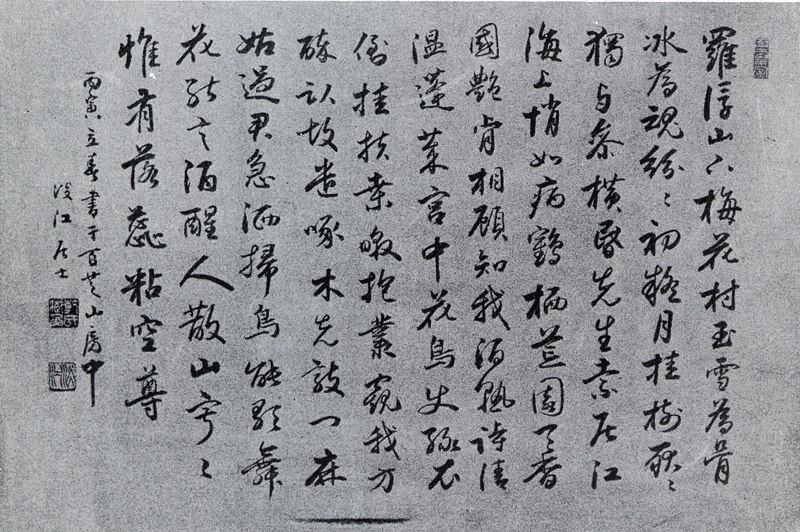 羅浮山下梅花村玉雪為骨
冰為魂紛〻初疑月桂樹耿〻
獨与參橫昏先生索居江
海上悄如病鶴栖荒園天香
國艷肯相顧知我酒熟詩清
溫蓬萊宮中花鳥史綠衣
倒挂扶桑暾抱叢窺我方
醉臥故遣啄木先敲门麻
姑過君急洒掃鳥能歌舞
花能言酒醒人散山寂〻
惟有落蕊粘空尊
丙寅立春書于百山房中
江居士